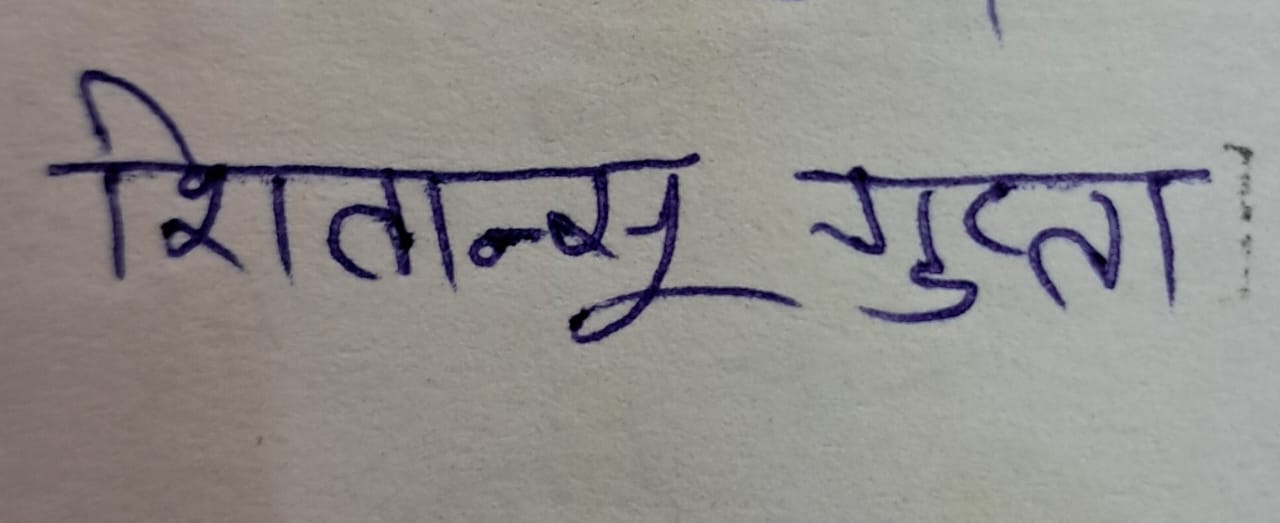 शितान्सू गुप्ता